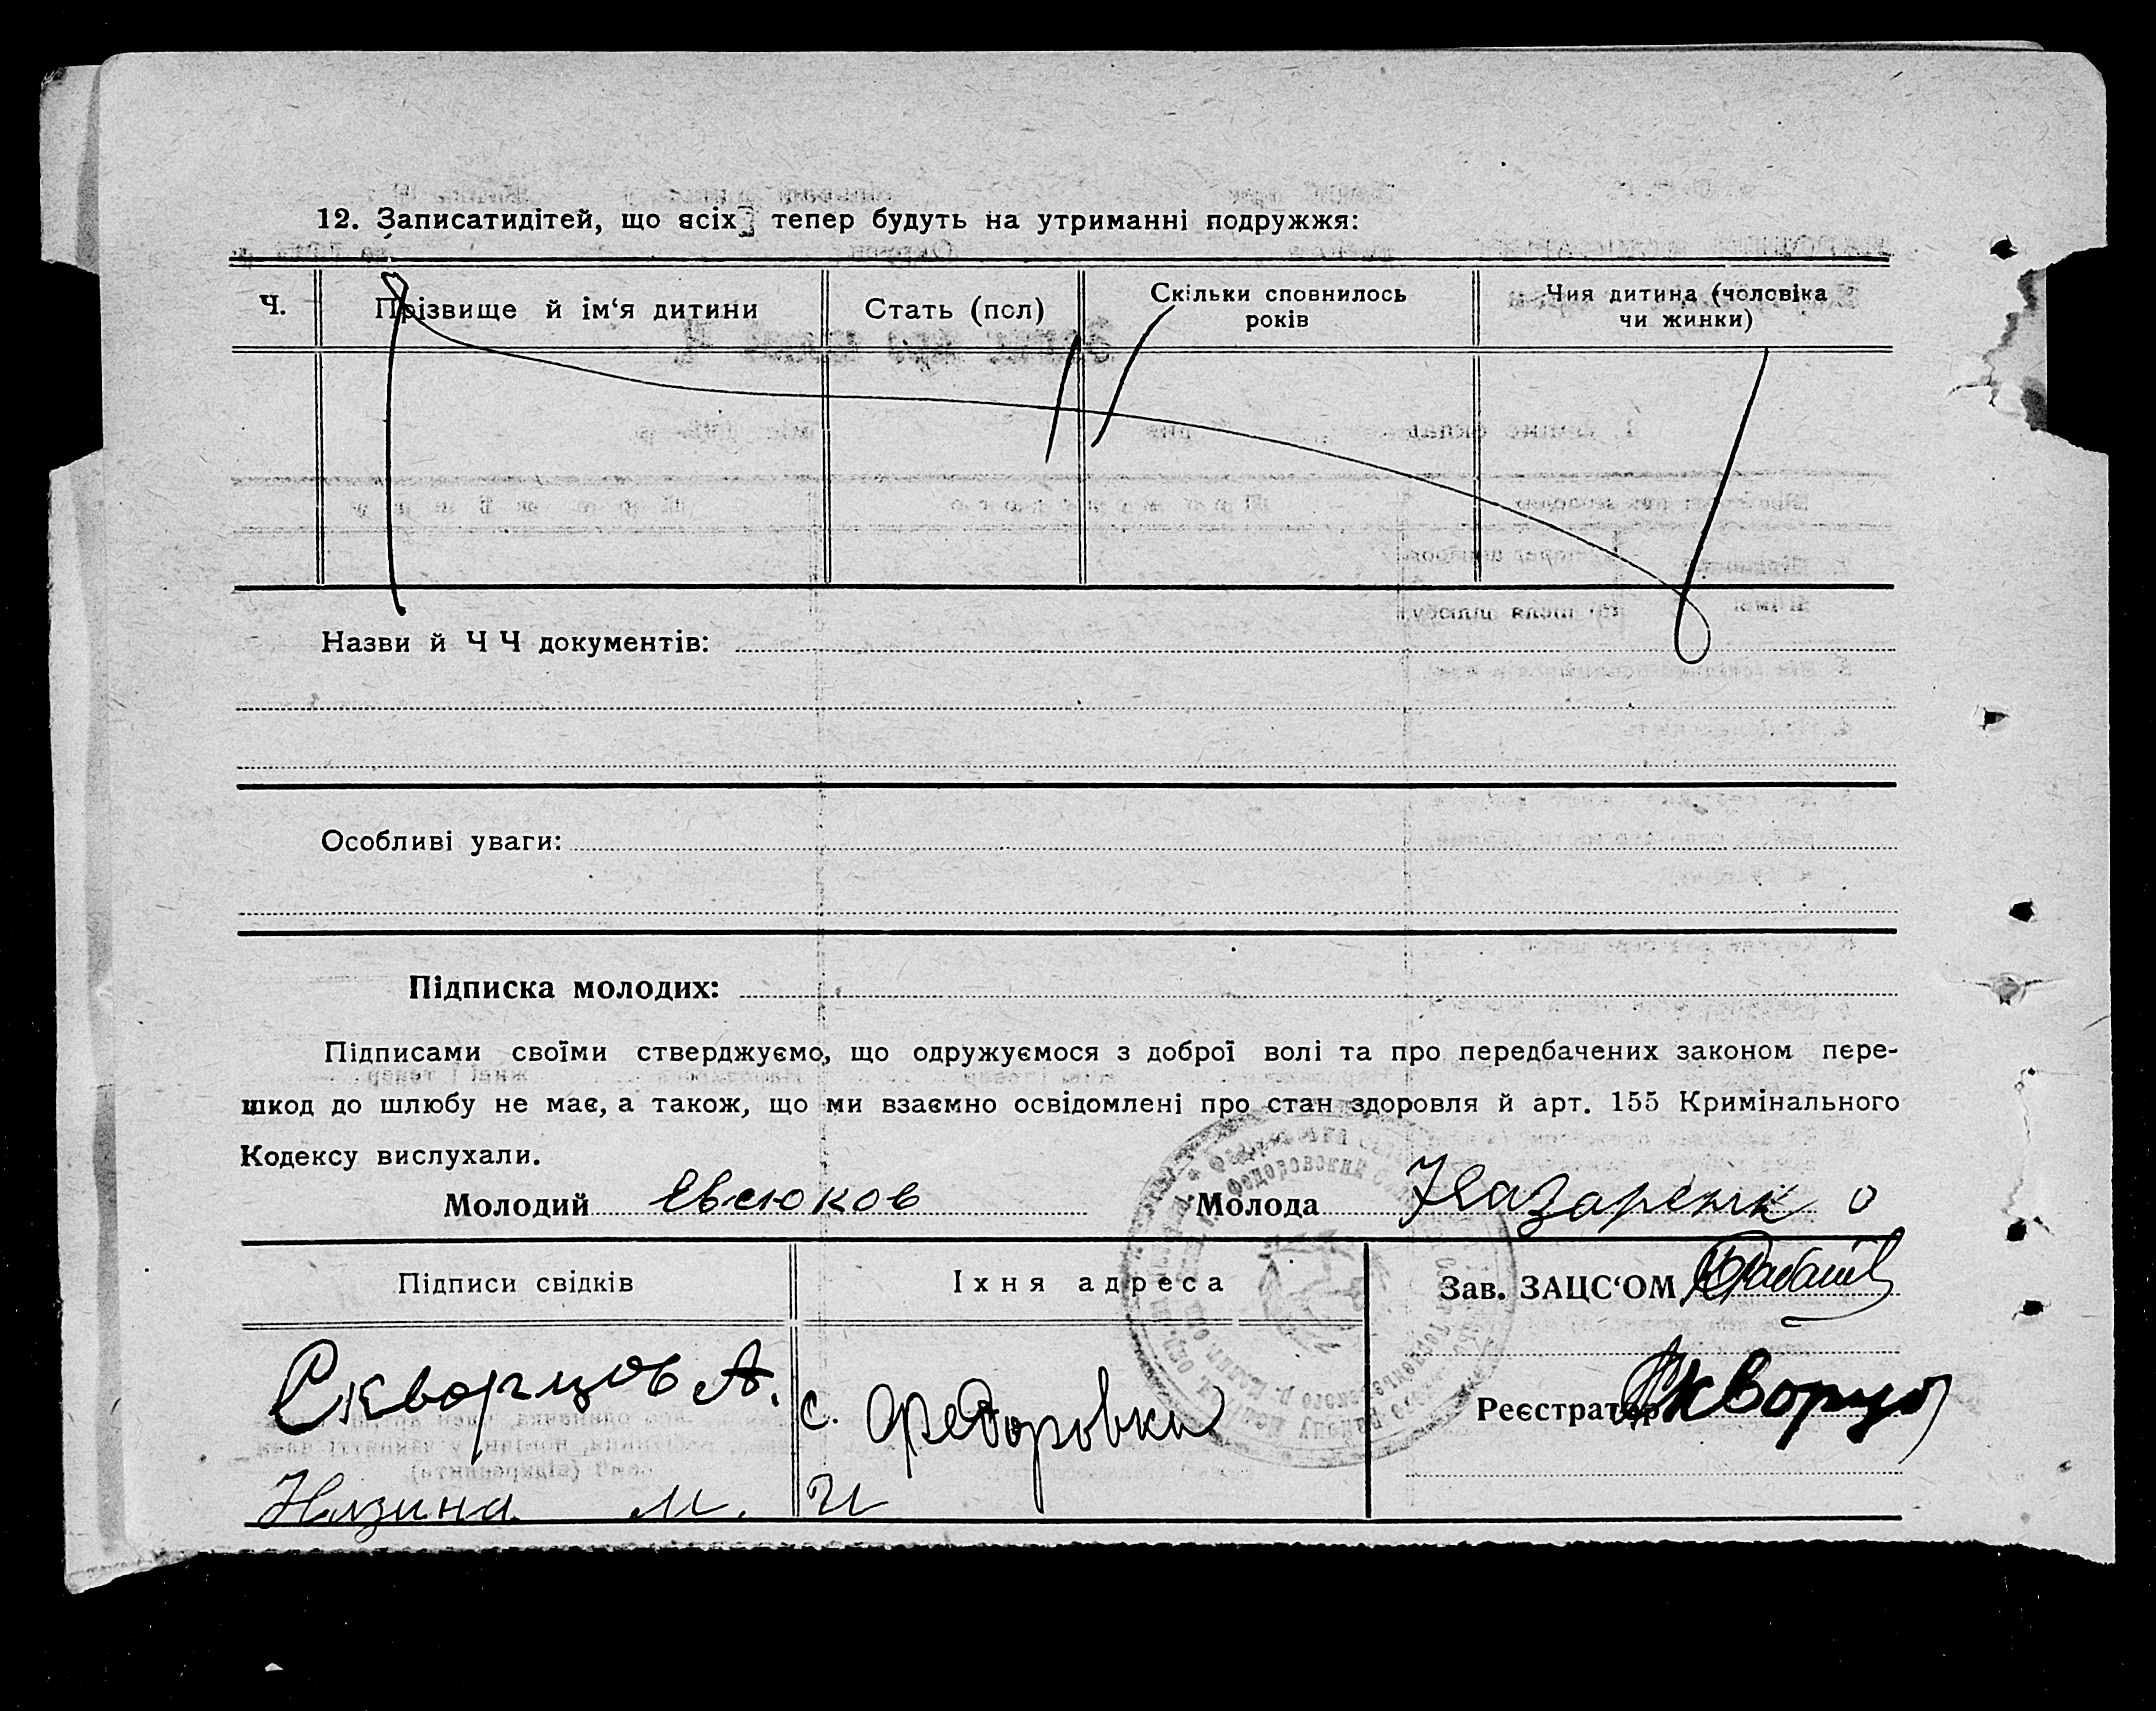 12. Записатидітей, що всіх тепер будуть на утриманні подружжя:
Ч. Прізвище й ім‘я дитини Стать (пол) Скільки сповнилось років Чия дитина (чоловіка чи жинки)
Назви й Ч Ч документів:
Особливі уваги:
Підписка молодих:
Підписами своїми стверджуємо, що одружуємося з доброї волі та про передбачених законом пере-
шкод до шлюбу не має, а також, що ми взаємно освідомлені про стан здоровля й арт. 155 Кримінального
Кодексу вислухали.
Молодий Евсюков Молода Назаренк о
Підписи свідків Їхня адреса Зав. ЗАЦС‘ОМ
Скворцов А. с. Федоровки Реєстратор Скворцов
М. И